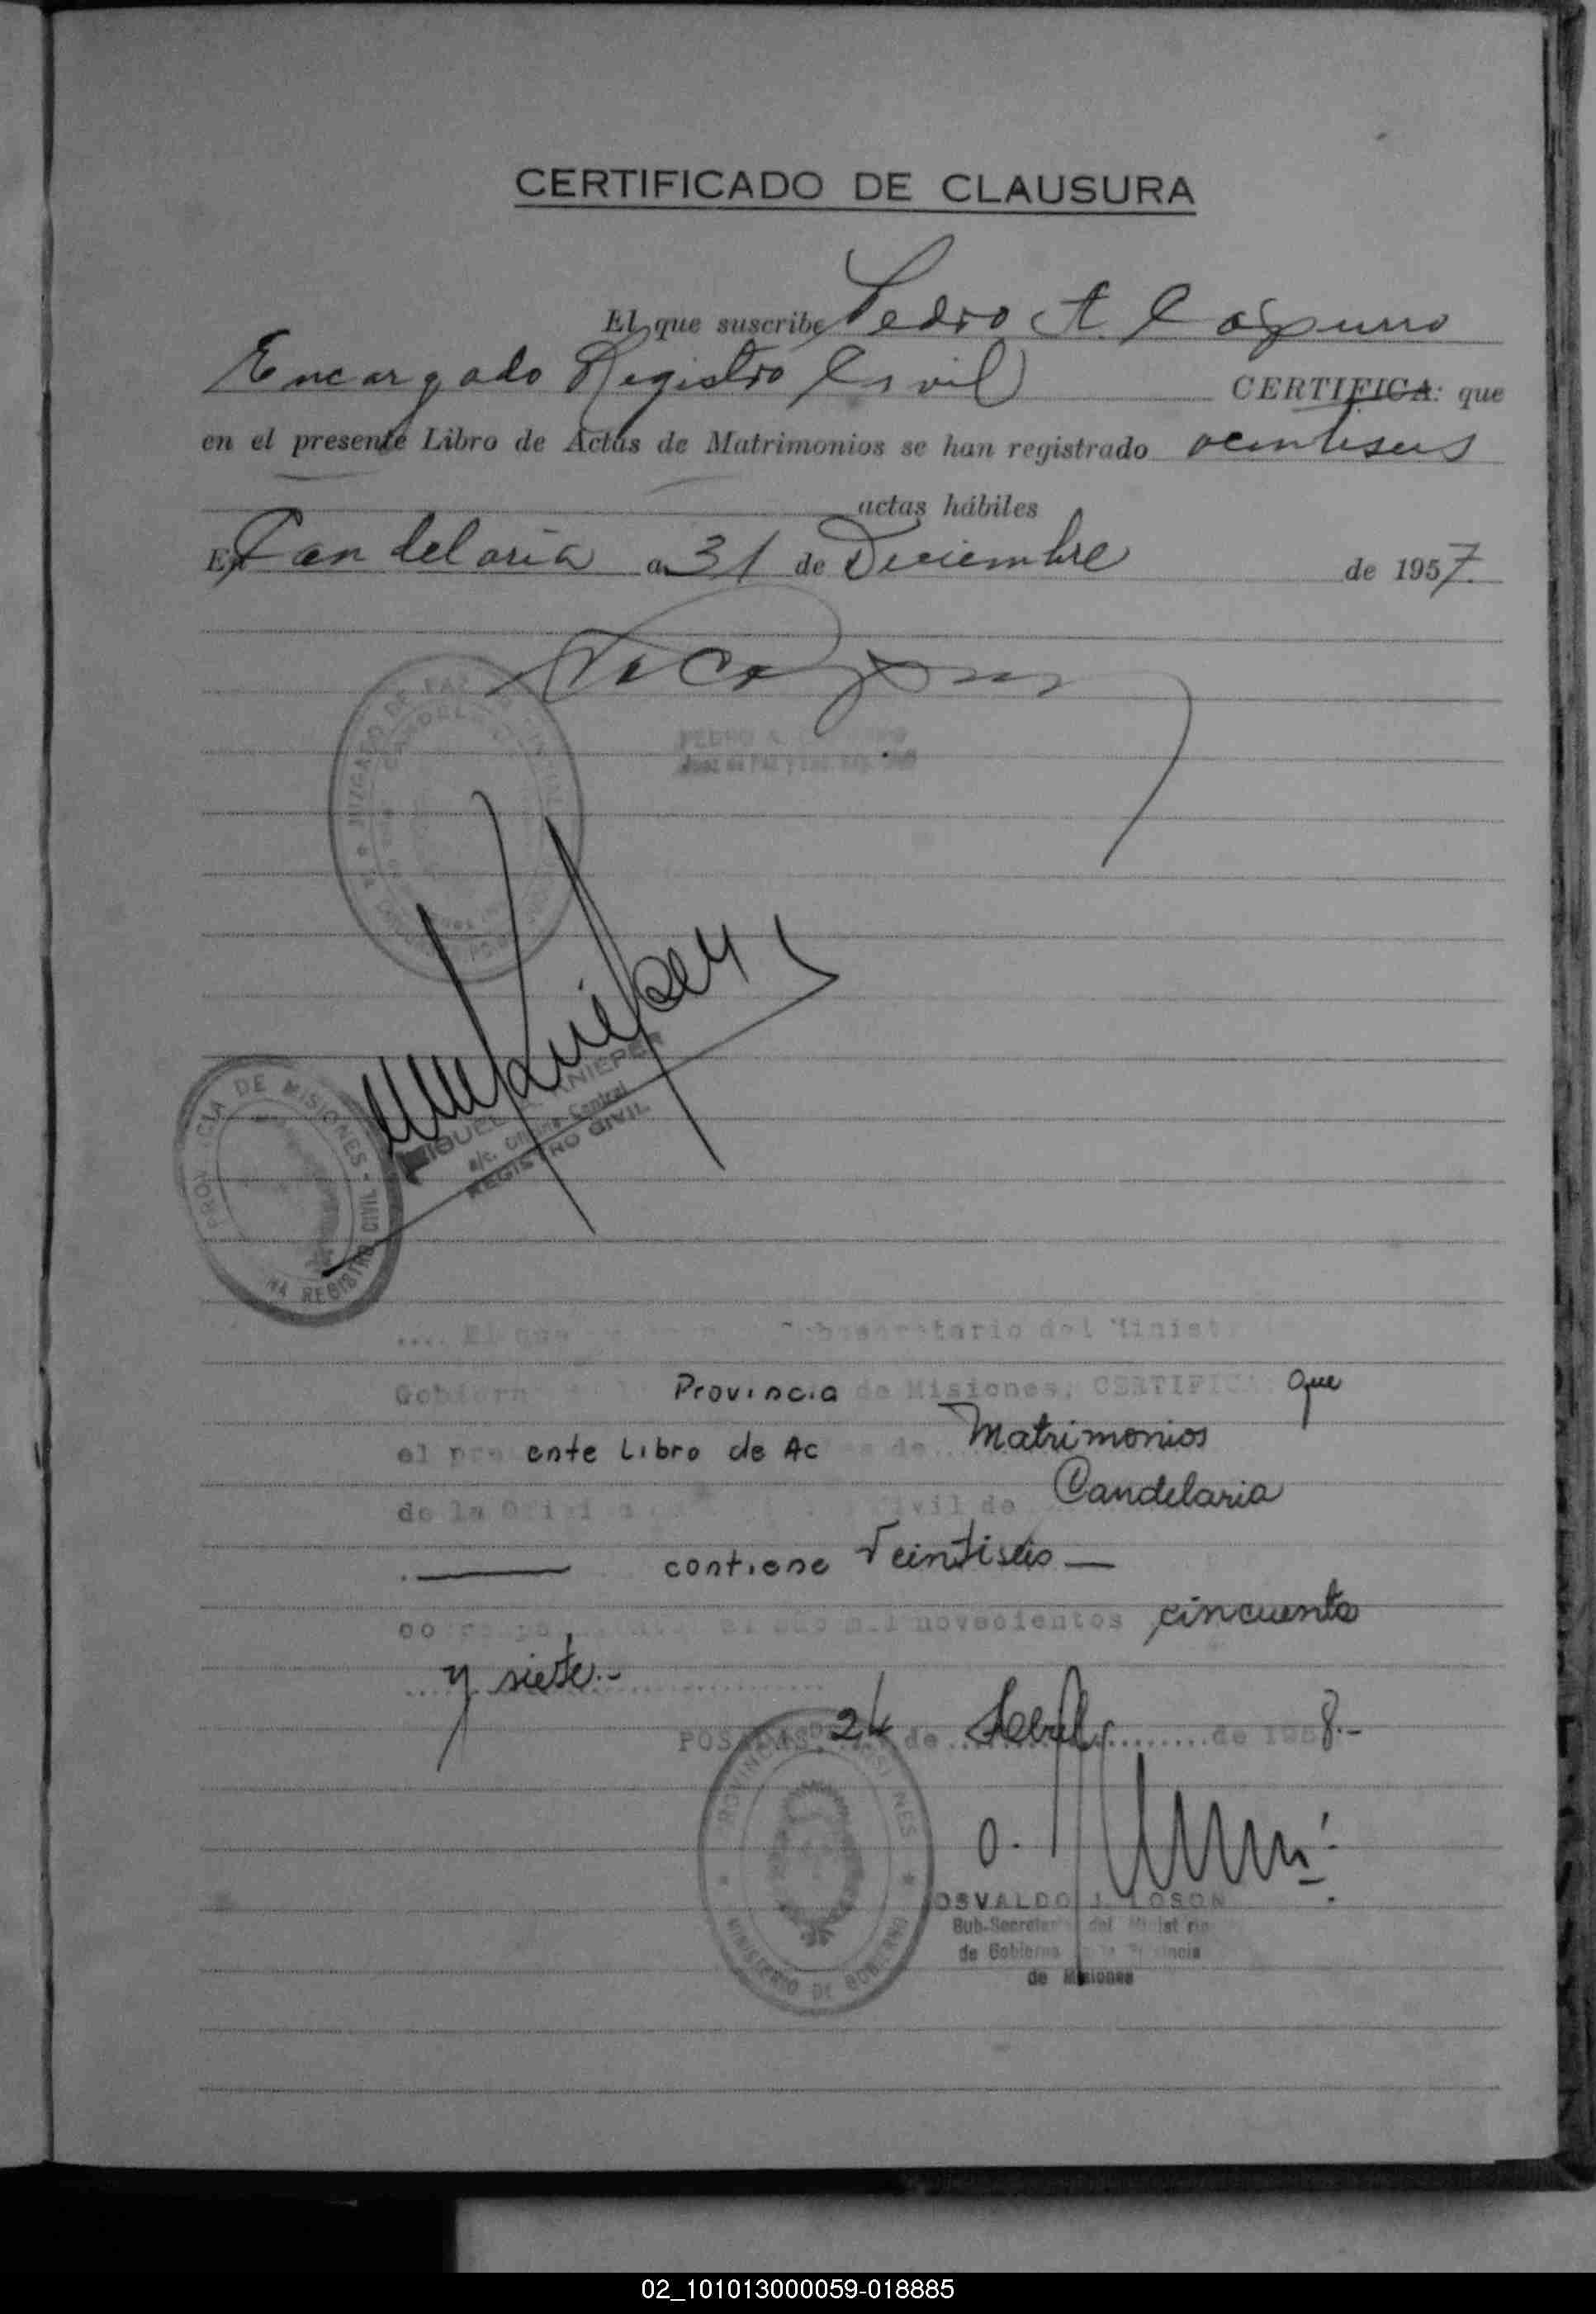 CERTIFICADO DE CLAUSURA
El que suscribe Pedro A.
Encargado Registro Civil CERTIFICA: que
en el presente Libro de Actas de Matrimonios se han registrado
actas hábiles
En Candelaria a 31 de Diciembre de 1957.
JUZGADO DE PAZ
PEDRO A.
Juez de Paz y
PROVINCIA DE MISIONES
REGISTRO CIVIL
MIGUEL A. KNIEPER
a/c. Oficina Central
REGISTRO CIVIL
.... El que Subsecretario del Minist
Gobiern Provincia de Misiones, CERTIFICA que
el presente Libro de Ac as de Matrimonios
de la Civil de Candelaria
contiene Veintiseis
al año mil novecientos cincuenta
y siete.-
POSADAS, 24 de de 1958.-
PROVINCIA DE MISIONES
MINISTERIO DE GOBIERNO
OSVALDO J. LOSON
Sub-Secretario del Ministerio
de Gobierno de la Provincia
de Misiones
02_101013000059-018885